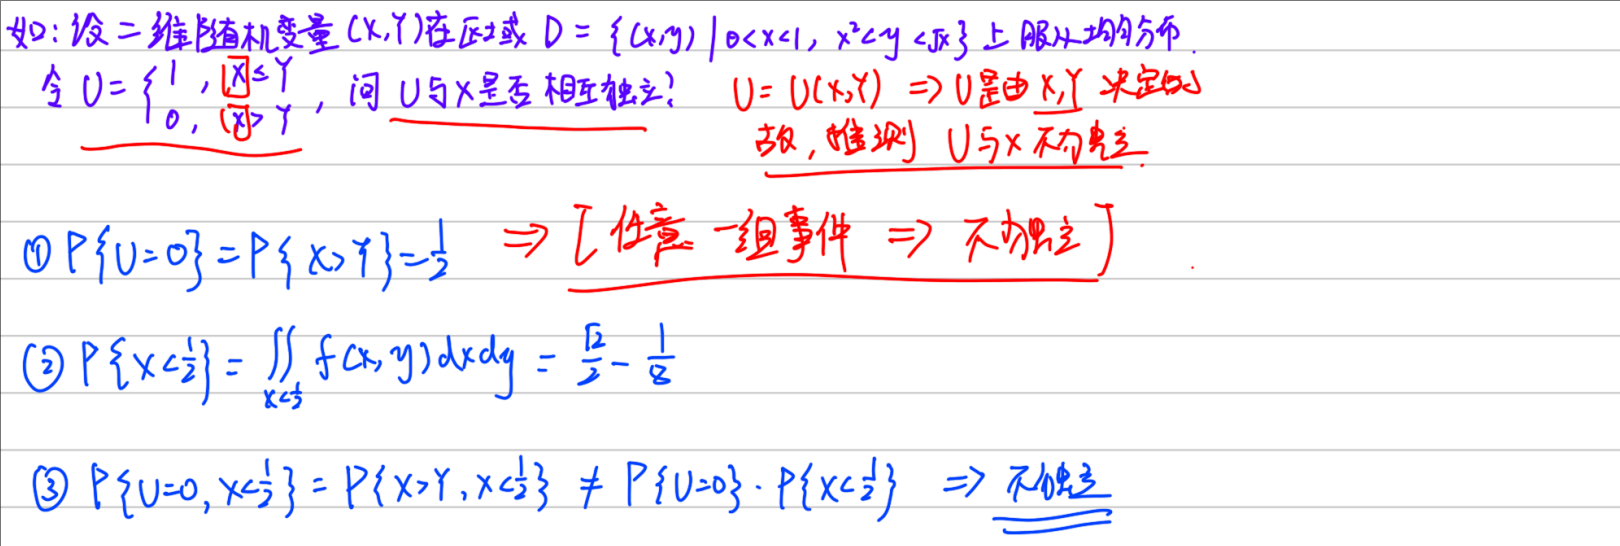 如：设二维随机变量(X,Y)在区域 D = {(x,y) | 0<x<1, x²<y<√x} 上服从均匀分布.
令 U = { 1, X≤Y
0, X>Y , 问 U与X是否相互独立? U = U(X,Y) ⇒ U是由X,Y决定的
故, 推测 U与X不为独立.
① P{U=0} = P{X>Y} = 1/2 ⇒ [任意一组事件 ⇒ 不为独立]
② P{X<1/2} = ∬_{X<1/2} f(x,y)dxdy = √2/2 - 1/8
③ P{U=0, X<1/2} = P{X>Y, X<1/2} ≠ P{U=0}·P{X<1/2} ⇒ 不独立